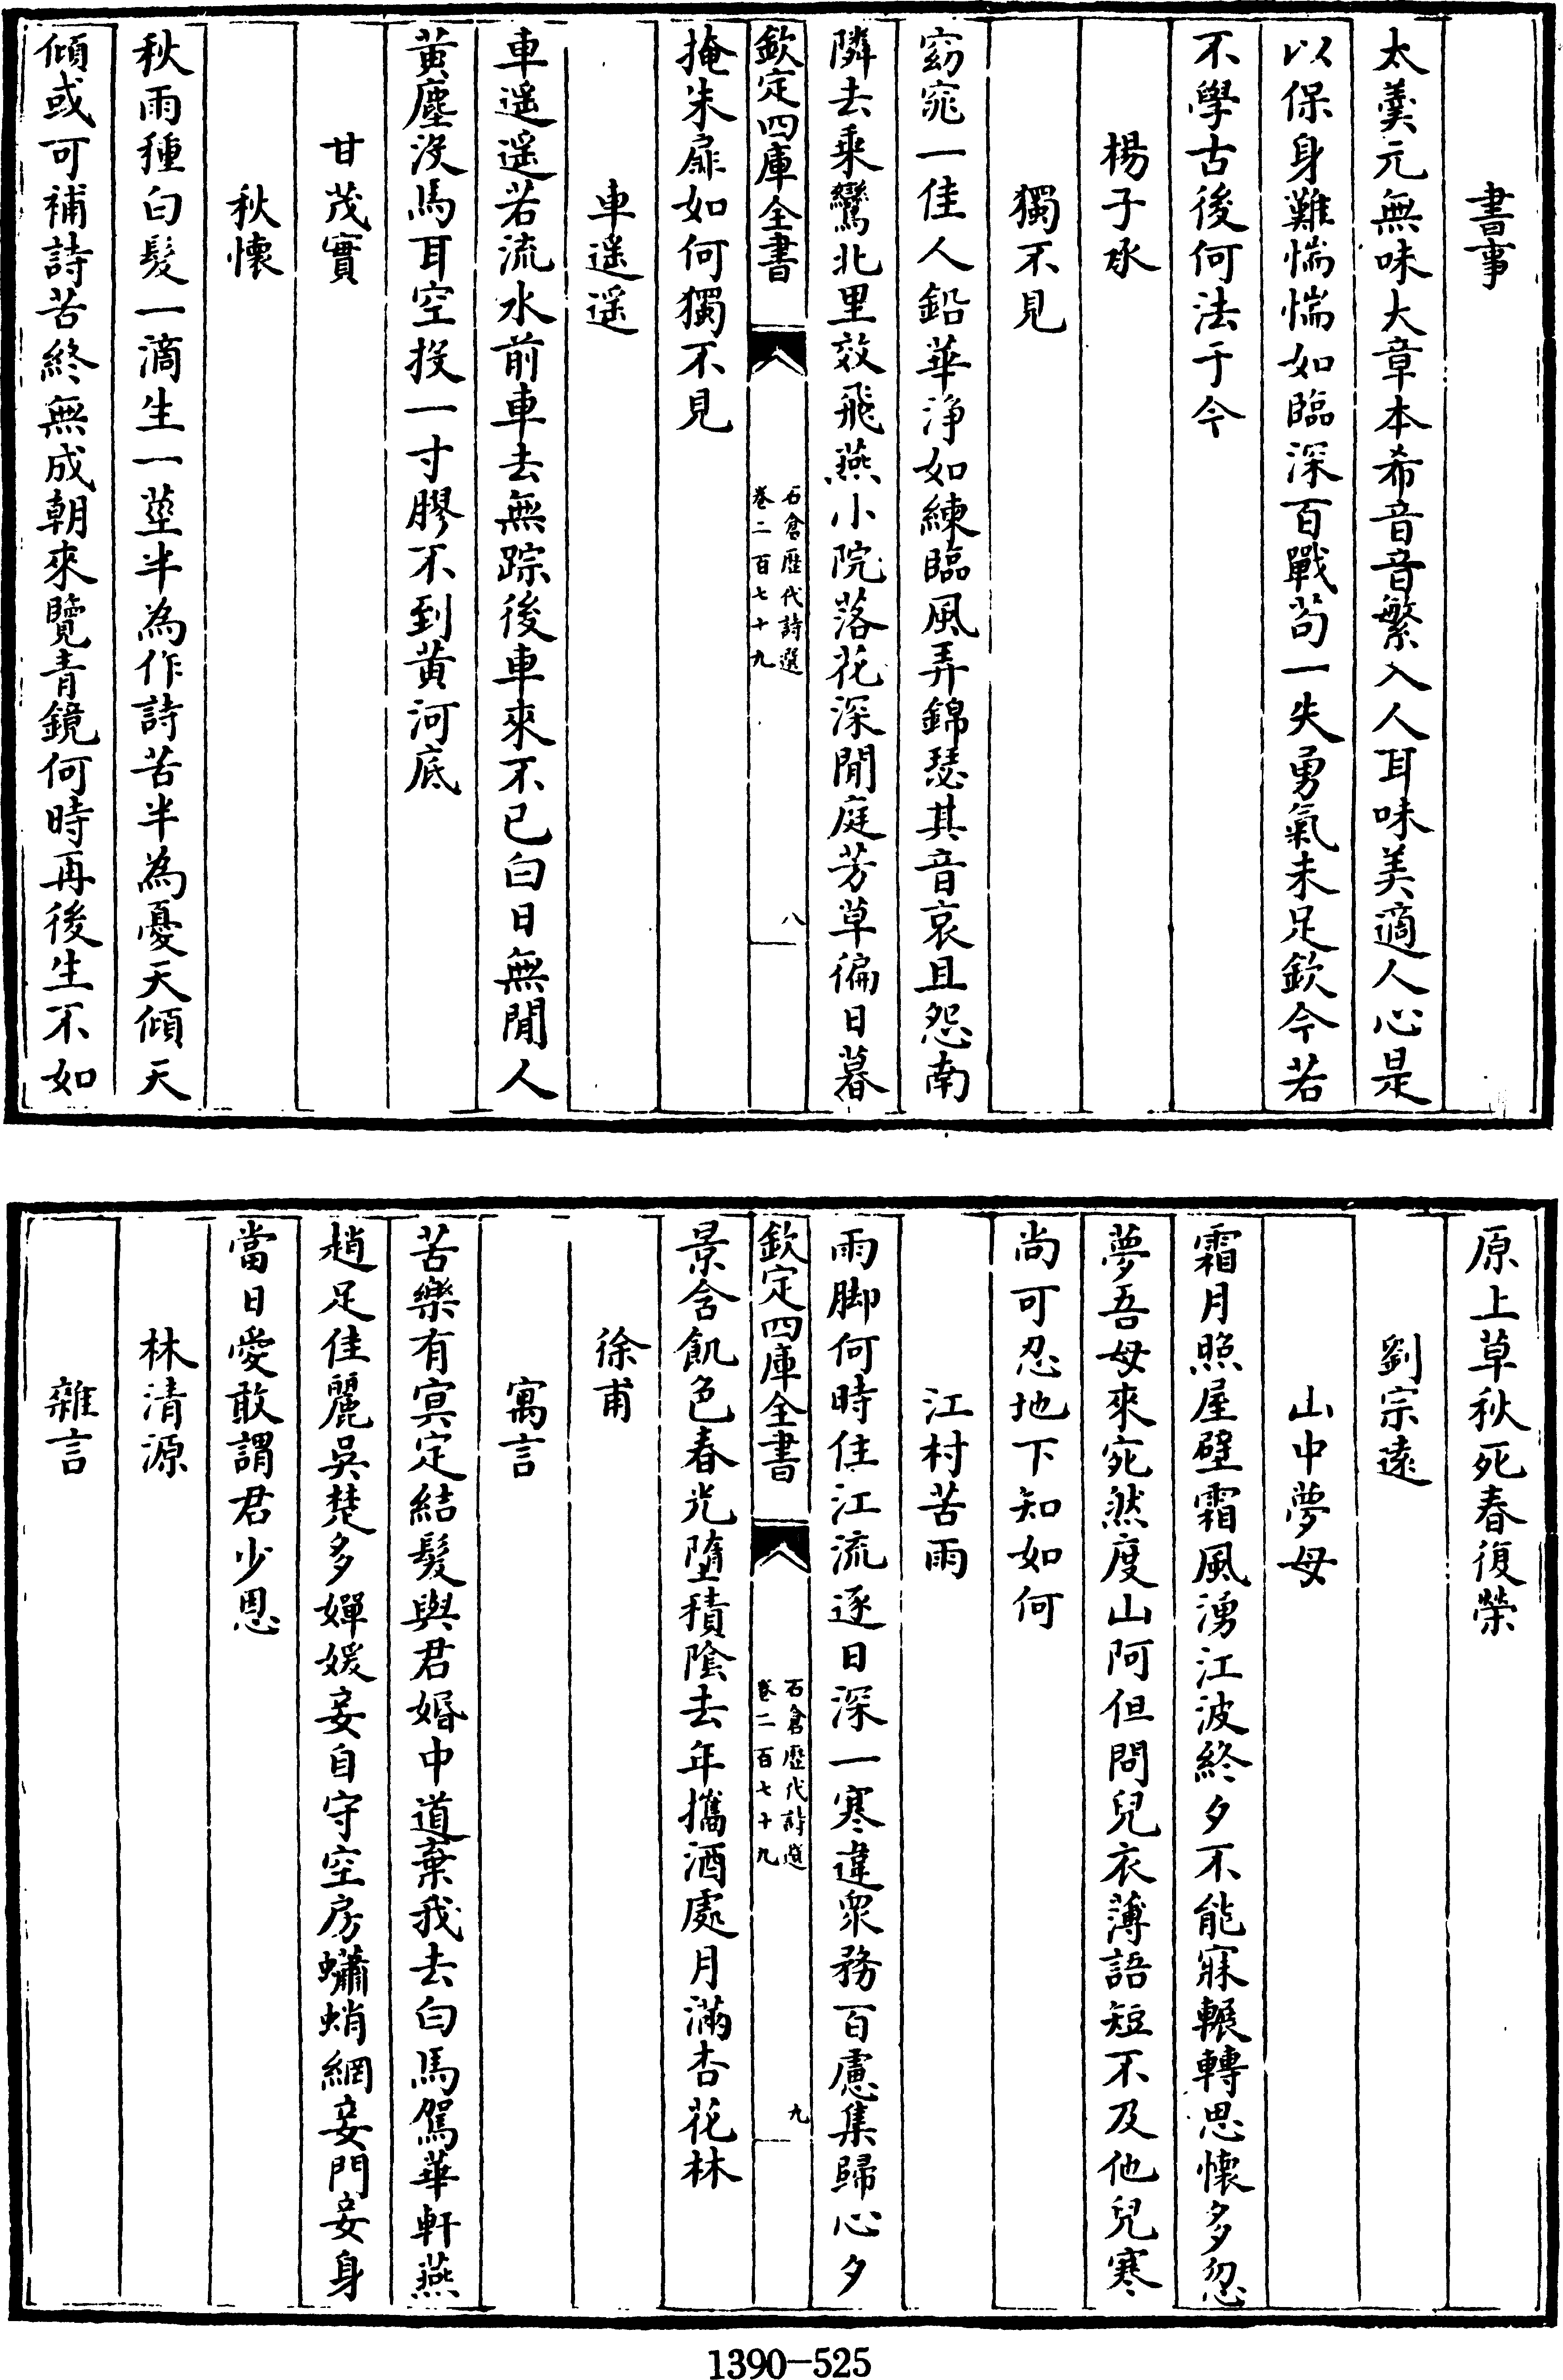 書事
太羹元無味大章本希音音繁入人耳味美適人心是
以保身難惴惴如臨深百戰茍一失勇氣未足欽今若
不學古後何法于今
楊子承
獨不見
窈窕一佳人鉛華浄如練臨風弄錦瑟其音哀且怨南
隣去乘鸞北里效飛燕小院落花深閒庭芳草徧日暮
欽定四庫全書
石倉歴代詩選
卷二百七十九
八
掩朱扉如何獨不見
車遥遥
車遥遥若流水前車去無踪後車來不已白日無閒人
黄塵没馬耳空投一寸膠不到黄河底
甘茂實
秋懷
秋雨種白髮一滴生一莖半為作詩苦半為憂天傾天
傾或可補詩苦終無成朝來覽青鏡何時再後生不如
原上草秋死春復榮
劉宗逺
山中夢母
霜月照屋壁霜風湧江波終夕不能寐輾轉思懷多忽
夢吾母來宛然度山阿但問兒衣薄語短不及他兒寒
尚可忍地下知如何
江村苦雨
雨脚何時住江流逐日深一寒違衆務百慮集歸心夕
欽定四庫全書
石倉歴代詩選
卷二百七十九
九
景含飢色春光墮積隂去年攜酒處月滿杏花林
徐甫
寓言
苦樂有㝠定結髮與君婚中道棄我去白馬駕華軒燕
趙足佳麗吳楚多嬋媛妾自守空房蠨蛸網妾門妾身
當日愛敢謂君少恩
林清源
雜言
1390-525